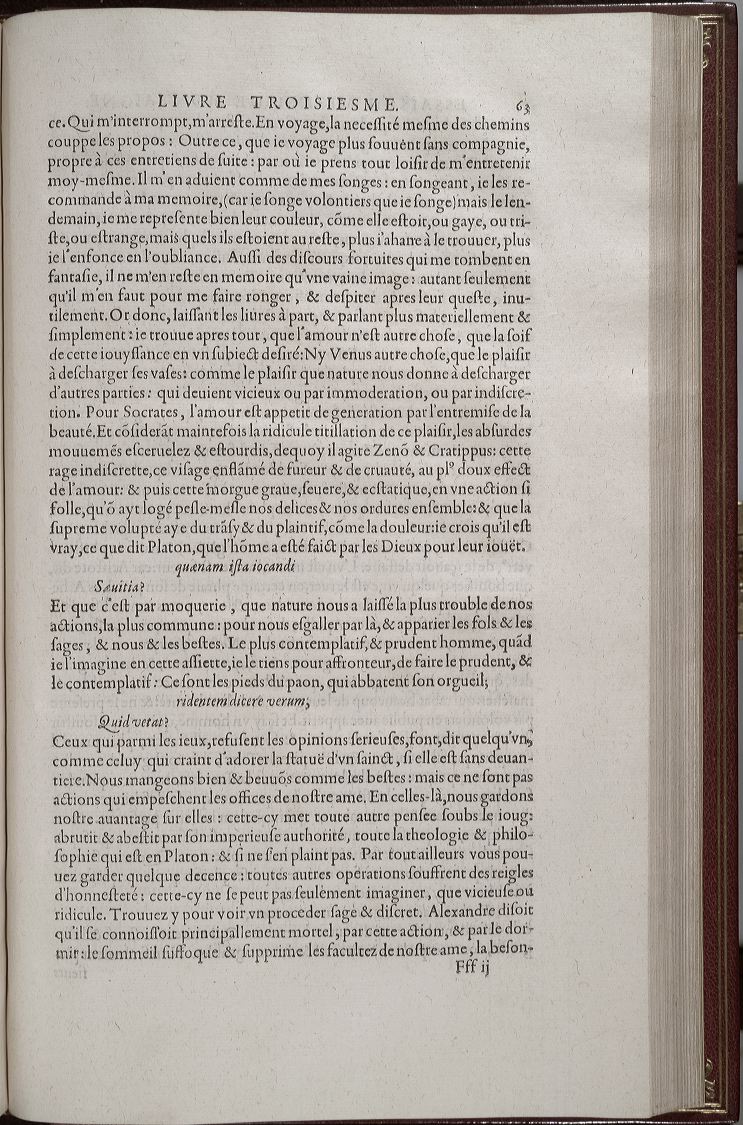 LIVRE TROISIESME. 63
ce. Qui m'interrompt, m'arreſte. En voyage, la neceſſité meſme des chemins
couppe les propos : Outre ce, que ie voyage plus ſouuēt ſans compagnie,
propre à ces entretiens de ſuite : par où ie prens tout loiſir de m'entretenir
moy-meſme. Il m'en aduient comme de mes ſonges : en ſongeant, ie les re-
commande à ma memoire, (car ie ſonge volontiers que ie ſonge) mais le len-
demain, ie me repreſente bien leur couleur, cōme elle eſtoit, ou gaye, ou tri-
ſte, ou eſtrange, mais quels ils eſtoient au reſte, plus i'ahane à le trouuer, plus
ie l'enfonce en l'oubliance. Auſſi des diſcours fortuites qui me tombent en
fantaſie, il ne m'en reſte en memoire qu'vne vaine image : autant ſeulement
qu'il m'en faut pour me faire ronger, & deſpiter apres leur queſte, inu-
tilement. Or donc, laiſſant les liures à part, & parlant plus materiellement &
ſimplement : ie trouue apres tout, que l'amour n'eſt autre choſe, que la ſoif
de cette iouyſſance en vn ſubiect deſiré: Ny Venus autre choſe, que le plaiſir
à deſcharger ſes vaſes: comme le plaiſir que nature nous donne à deſcharger
d'autres parties : qui deuient vicieux ou par immoderation, ou par indiſcre-
tion. Pour Socrates, l'amour eſt appetit de generation par l'entremiſe de la
beauté. Et cōſiderāt maintefois la ridicule titillation de ce plaiſir, les abſurdes
mouuemēs eſceruelez & eſtourdis, dequoy il agite Zenō & Cratippus: cette
rage indiſcrette, ce viſage enflāmé de fureur & de cruauté, au plꝰ doux effect
de l'amour: & puis cette morgue graue, ſeuere, & ecſtatique, en vne action ſi
folle, qu'ō ayt logé peſle-meſle nos delices & nos ordures enſemble: & que la
ſupreme volupté aye du trāſy & du plaintif, cōme la douleur: ie crois qu'il eſt
vray, ce que dit Platon, que l'hōme a eſté faict par les Dieux pour leur iouët.
quænam iſta iocandi
Sæuitia?
Et que c'eſt par moquerie, que nature nous a laiſſé la plus trouble de nos
actions, la plus commune : pour nous eſgaller par là, & apparier les fols & les
ſages, & nous & les beſtes. Le plus contemplatif, & prudent homme, quād
ie l'imagine en cette aſſiette, ie le tiens pour affronteur, de faire le prudent, &
le contemplatif : Ce ſont les pieds du paon, qui abbatent ſon orgueil;
ridentem dicere verum,
Quid vetat?
Ceux qui parmi les ieux, refuſent les opinions ſerieuſes, font, dit quelqu'vn,
comme celuy qui craint d'adorer la ſtatuë d'vn ſainct, ſi elle eſt ſans deuan-
tiere. Nous mangeons bien & beuuōs comme les beſtes : mais ce ne ſont pas
actions qui empeſchent les offices de noſtre ame. En celles-là, nous gardons
noſtre auantage ſur elles : cette-cy met toute autre penſee ſoubs le ioug:
abrutit & abeſtit par ſon imperieuſe authorité, toute la theologie & philo-
ſophie qui eſt en Platon : & ſi ne ſ'en plaint pas. Par tout ailleurs vous pou-
uez garder quelque decence : toutes autres operations ſouffrent des reigles
d'honneſteté : cette-cy ne ſe peut pas ſeulement imaginer, que vicieuſe ou
ridicule. Trouuez y pour voir vn proceder ſage & diſcret. Alexandre diſoit
qu'il ſe connoiſſoit principallement mortel, par cette action, & par le dor-
mir : le ſommeil ſuffoque & ſupprime les facultez de noſtre ame, la beſon-
Fff ij